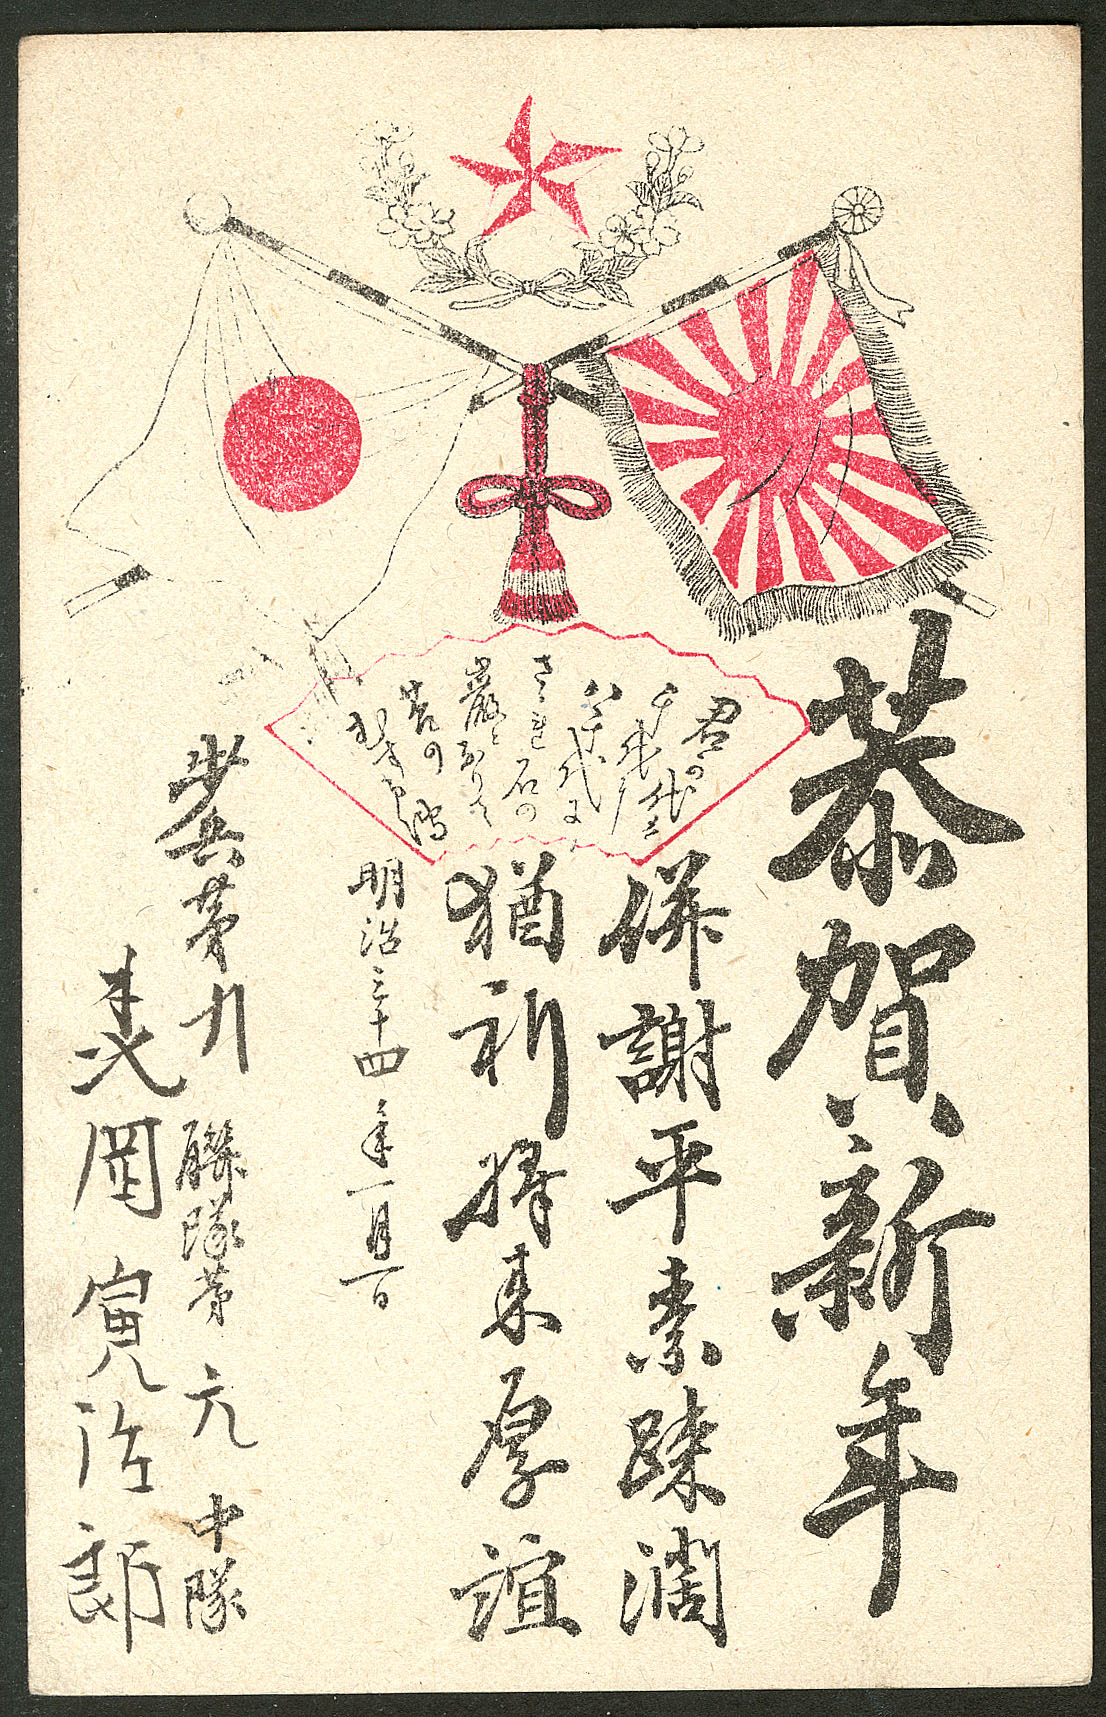 恭賀新年
君の代は
千代に
八千代に
さゞれ石の
巌となりて
苔の
併謝平素疎濶
猶祈将来厚誼
明治三十四年一月一日
歩兵第九聯隊第六中隊
岡寅治郎